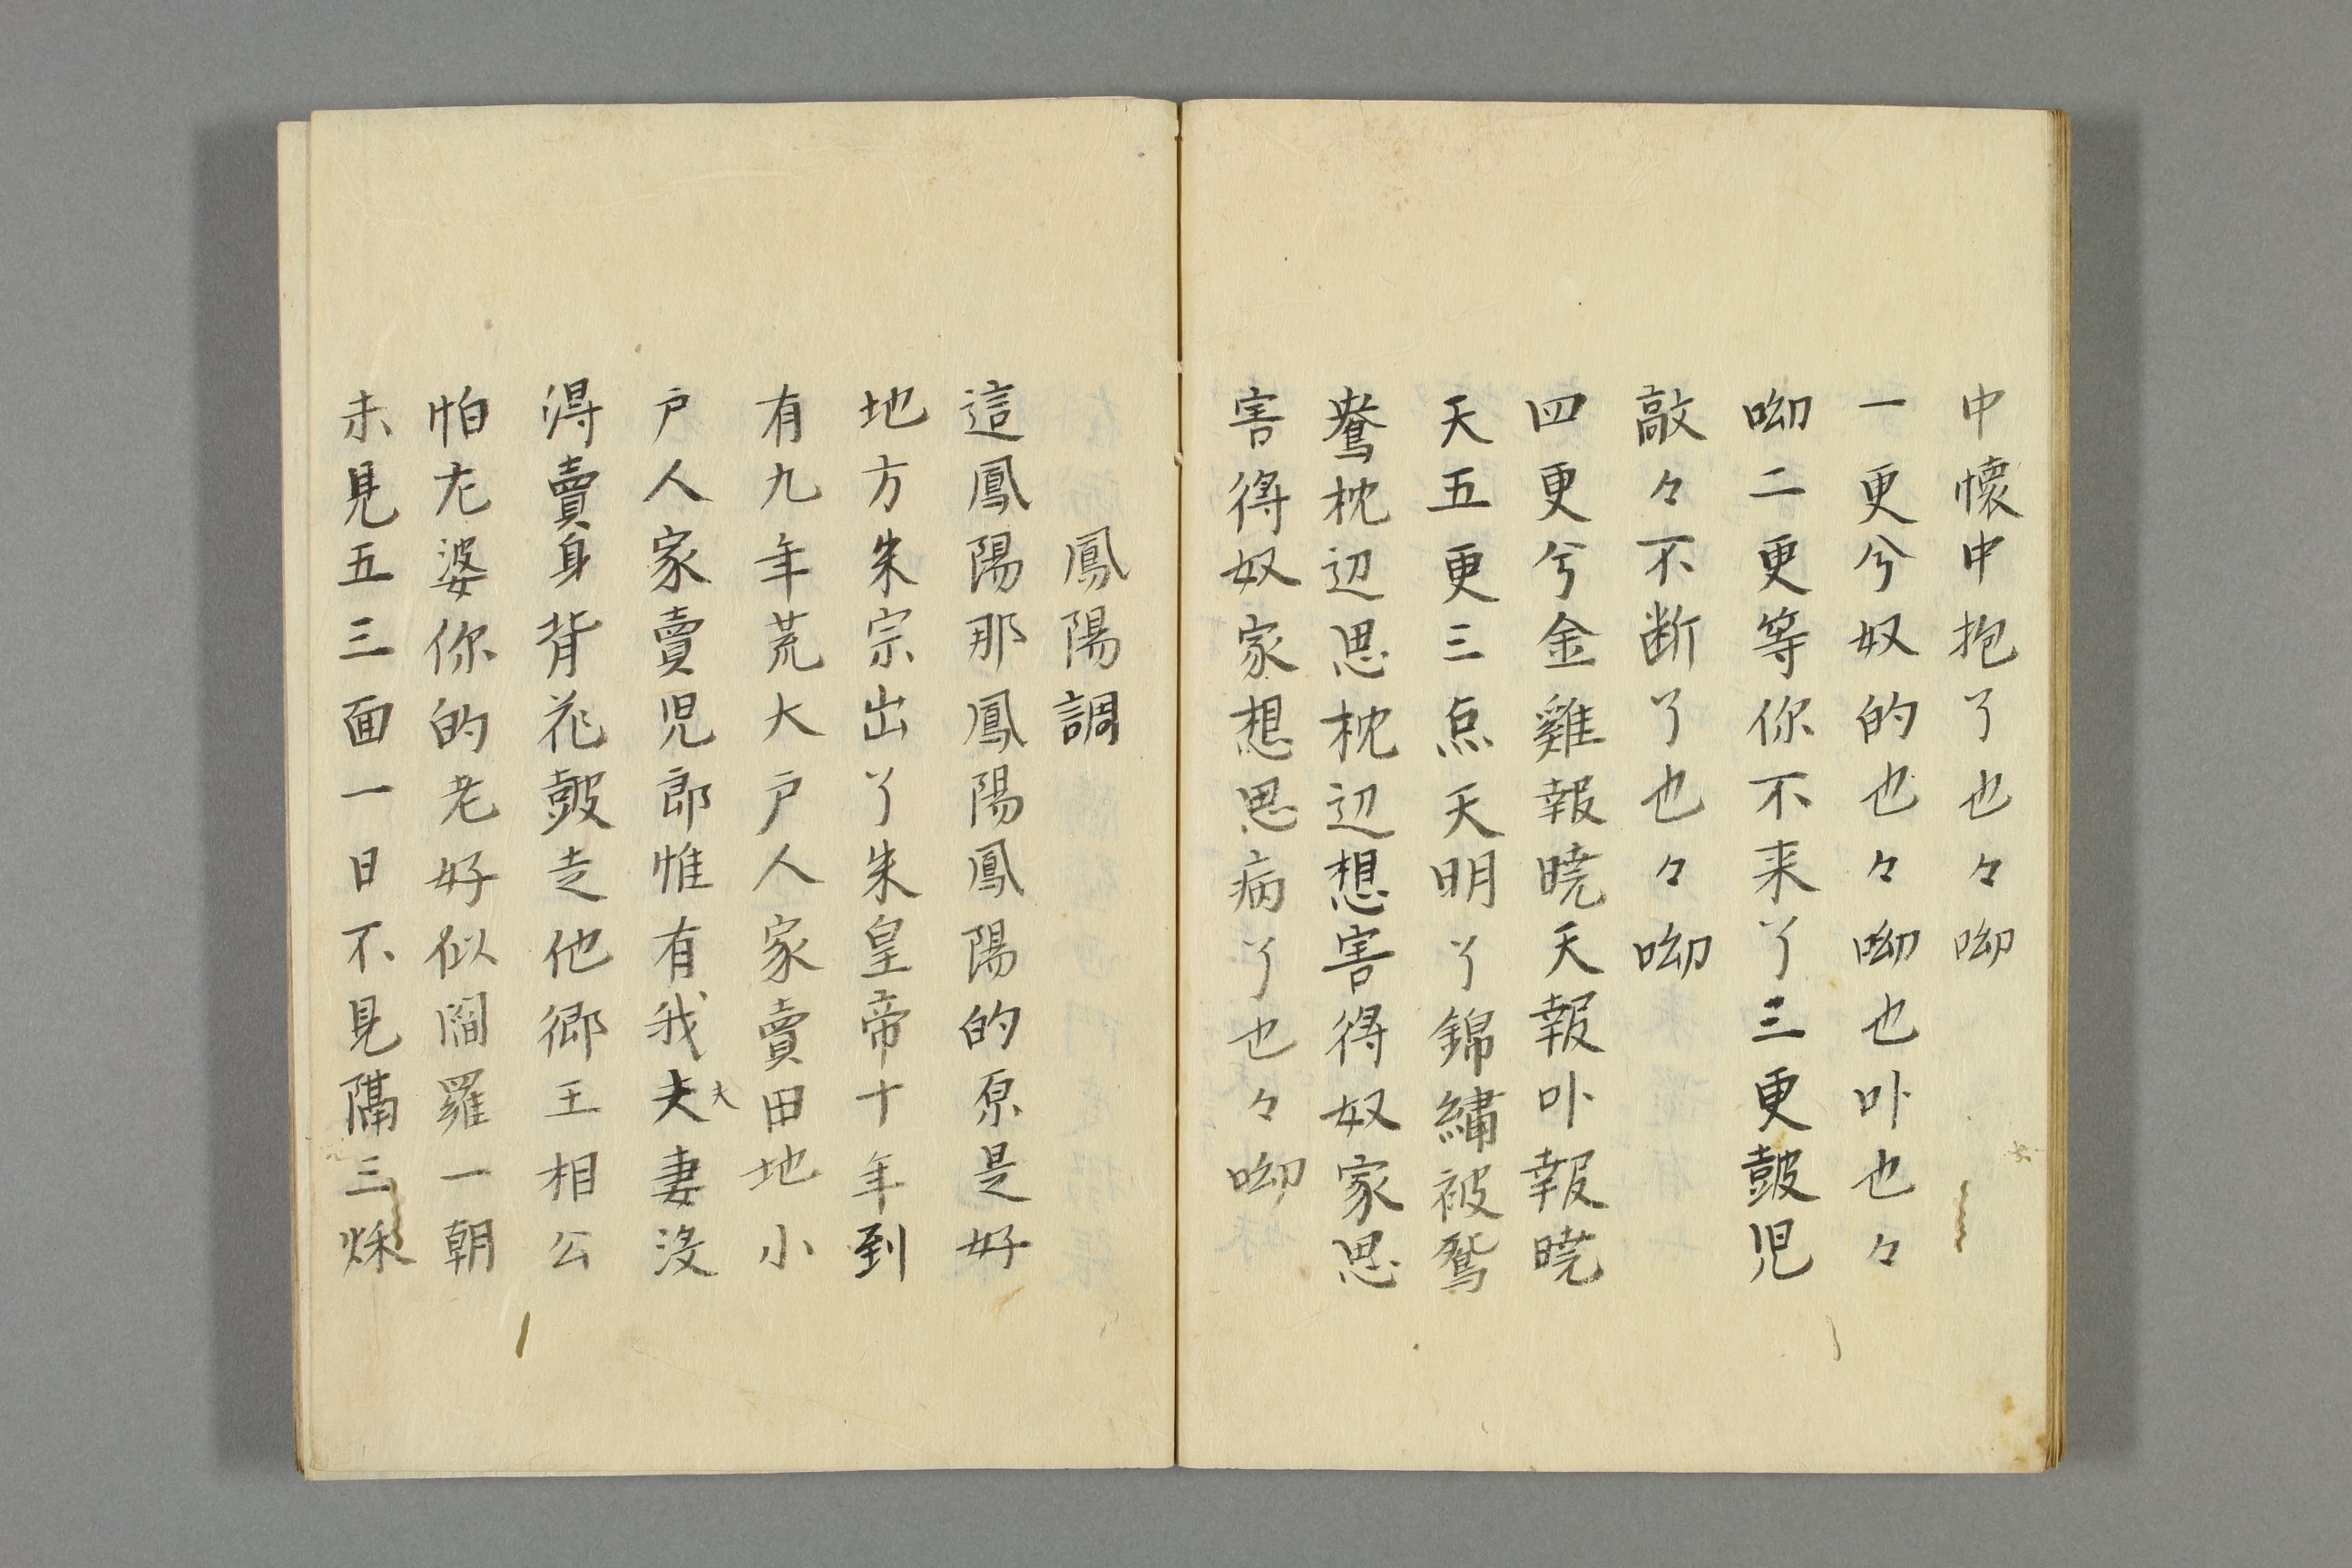 中懷中抱了也々呦
一更兮奴的也々呦也卟也々
呦二更等你不来了三更皷児
敲々不断了也々呦
四更兮金雞報曉天報卟報曉
天五更三点天明了錦繡被鴛
鴦枕辺思枕辺想害得奴家思
害得奴家想思病了也々呦
鳳陽調
這鳳陽那鳳陽鳳陽的原是好
地方朱宗出了朱皇帝十年到
有九年荒大户人家賣田地小
户人家賣児郎惟有我夫妻没
夫
得賣身背花皷走他鄉王相公
怕尤婆你的老好似閻羅一朝
未見五三面一日不見隔三秌